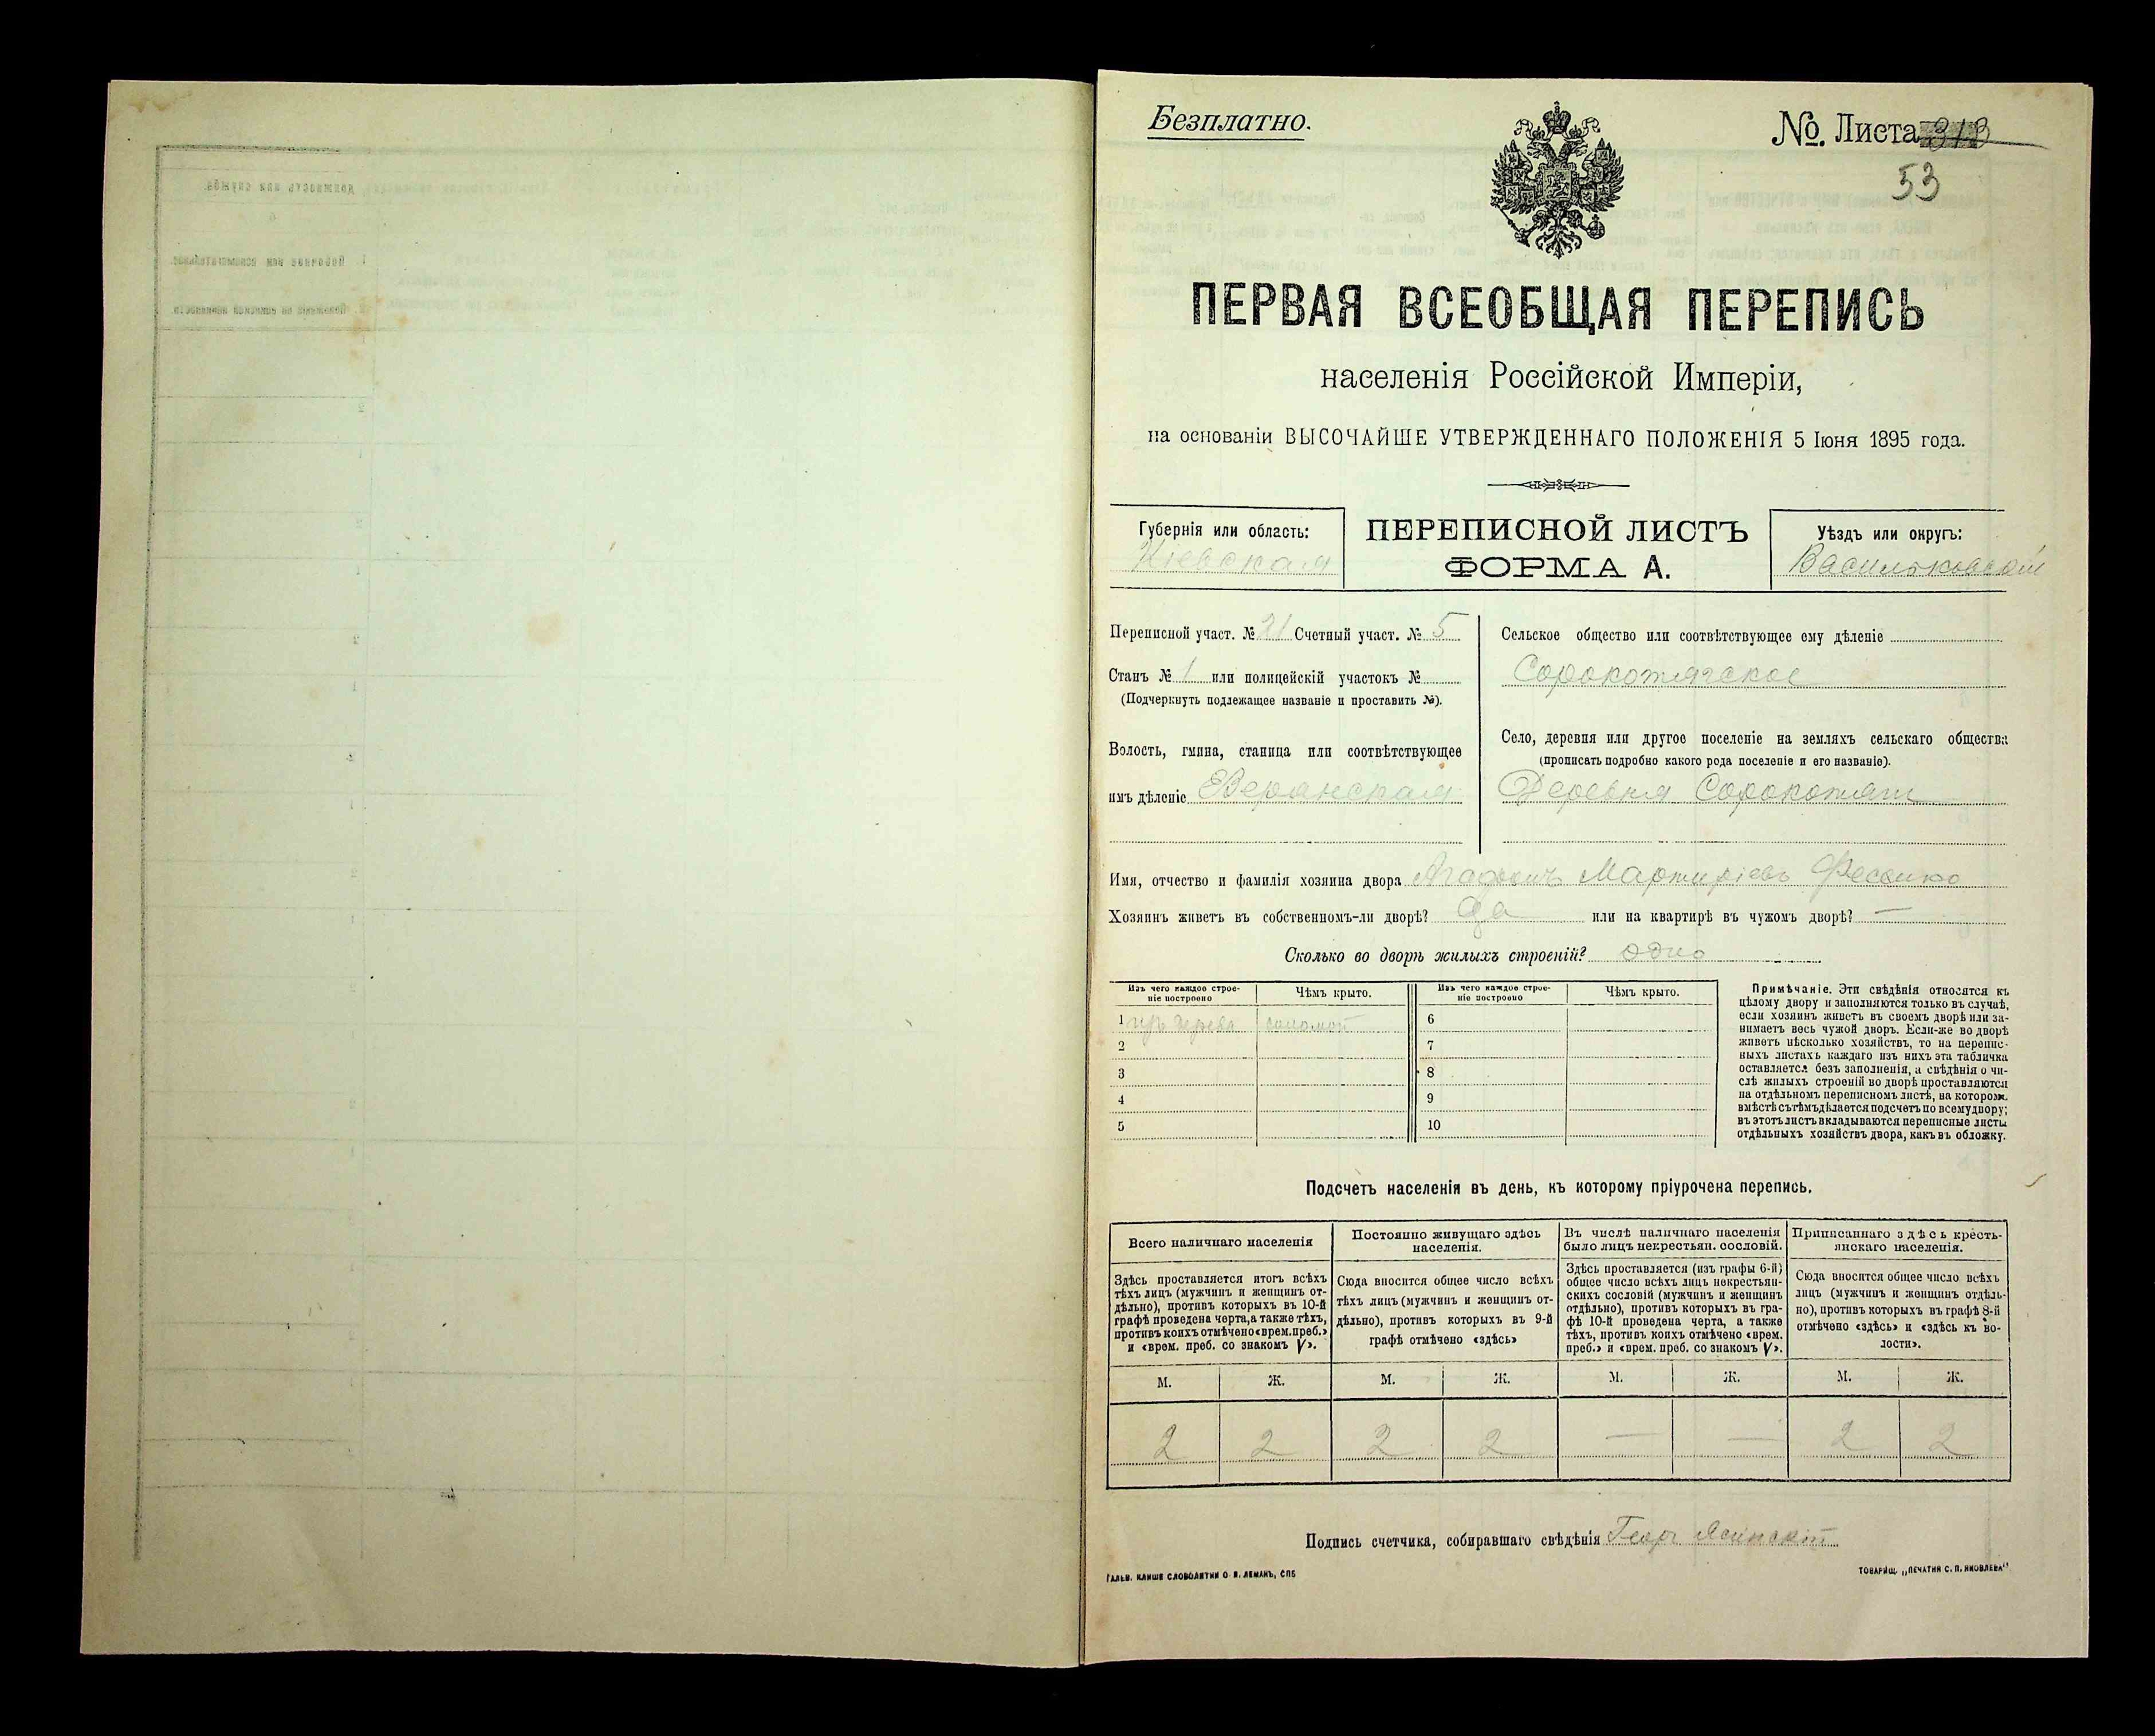 Безплатно.
№. Листа 313
53
ПЕРВАЯ ВСЕОБЩАЯ ПЕРЕПИСЬ
населенія Россійской Имперіи,
на основаніи ВЫСОЧАЙШЕ УТВЕРЖДЕННАГО ПОЛОЖЕНІЯ 5 Іюня 1895 года.
Губернія или область:
Кіевская
ПЕРЕПИСНОЙ ЛИСТЪ
ФОРМА А.
Уѣздъ или округъ:
Васильковскій
Переписной участ. № 21 Счетный участ. № 5
Станъ № 1 или полицейскій участокъ №
(Подчеркнуть подлежащее названіе и проставить №).
Волость, гмина, станица или соотвѣтствующее
имъ дѣленіе
Сельское общество или соотвѣтствующее ему дѣленіе
Сорокотягское
Село, деревня или другое поселеніе на земляхъ сельскаго общества
(прописать подробно какого рода поселеніе и его названіе).
Деревня Сорокотяги
Имя, отчество и фамилія хозяина двора Мартиріевъ
Хозяинъ живетъ въ собственномъ-ли дворѣ? Да или на квартирѣ въ чужомъ дворѣ? —
Сколько во дворѣ жилыхъ строеній? одно
Изъ чего каждое строе-
ніе построено
Чѣмъ крыто.
Изъ чего каждое строе-
ніе построено
Чѣмъ крыто.
1 изъ дерева соломой 6
2 7
3 8
4 9
5 10
Примѣчаніе. Эти свѣдѣнія относятся къ
цѣлому двору и заполняются только въ случаѣ,
если хозяинъ живетъ въ своемъ дворѣ или за-
нимаетъ весь чужой дворъ. Если-же во дворѣ
живетъ нѣсколько хозяйствъ, то на перепис-
ныхъ листахъ каждаго изъ нихъ эта табличка
оставляется безъ заполненія, а свѣдѣнія о чи-
слѣ жилыхъ строеній во дворѣ проставляются
на отдѣльномъ переписномъ листѣ, на которомъ
вмѣстѣ съ тѣмъ дѣлается подсчетъ по всему двору;
въ этотъ листъ вкладываются переписные листы
отдѣльныхъ хозяйствъ двора, какъ въ обложку.
Подсчетъ населенія въ день, къ которому пріурочена перепись.
Всего наличнаго населенія
Здѣсь проставляется итогъ всѣхъ
тѣхъ лицъ (мужчинъ и женщинъ от-
дѣльно), противъ которыхъ въ 10-й
графѣ проведена черта, а также тѣхъ,
противъ коихъ отмѣчено «врем. преб.»
и «врем. преб. со знакомъ V».
Постоянно живущаго здѣсь
населенія.
Сюда вносится общее число всѣхъ
тѣхъ лицъ (мужчинъ и женщинъ от-
дѣльно), противъ которыхъ въ 9-й
графѣ отмѣчено «здѣсь»
Въ числѣ наличнаго населенія
было лицъ некрестьян. сословій.
Здѣсь проставляется (изъ графы 6-й)
общее число всѣхъ лицъ некрестьян-
скихъ сословій (мужчинъ и женщинъ
отдѣльно), противъ которыхъ въ гра-
фѣ 10-й проведена черта, а также
тѣхъ, противъ коихъ отмѣчено «врем.
преб.» и «врем. преб. со знакомъ V».
Приписаннаго здѣсь кресть-
янскаго населенія.
Сюда вносится общее число всѣхъ
лицъ (мужчинъ и женщинъ отдѣль-
но), противъ которыхъ въ графѣ 8-й
отмѣчено «здѣсь» и «здѣсь къ во-
лости».
М. Ж. М. Ж. М. Ж. М. Ж.
2 2 2 2 — — 2 2
Подпись счетчика, собиравшаго свѣдѣнія Георг Ясинскій
ГАЛЬВ. КЛИШЕ СЛОВОЛИТНИ О. И. ЛЕМАНЪ, СПБ
ТОВАРИЩ. „ПЕЧАТНЯ С. П. ЯКОВЛЕВА"